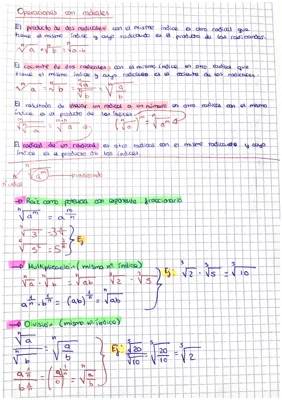 Operaciones con radicales
El producto de dos radicales con el mismo índice es otro radical que
tiene el mismo índice y cuyo radicando es el producto de los radicandos.
ⁿ√a · ⁿ√b = ⁿ√a·b
El cociente de dos radicales con el mismo índice es otro radical que
tiene el mismo índice y cuyo radicando es el cociente de los radicandos
ⁿ√a : ⁿ√b = ⁿ√a / ⁿ√b = ⁿ√(a/b)
El resultado de elevar un radical a un número es otro radical con el mismo
índice
El radical de un radical es otro radical con el mismo radicando y cuyo
índice es el producto de los índices.
→ Raíz como potencia con exponente fraccionario
ⁿ√aᵐ = a^(m/n)
Ej
→ Multiplicación (mismo nº índice)
ⁿ√a · ⁿ√b = ⁿ√ab
Ej: ³√2 · ³√5 = ³√10
a^(1/n) · b^(1/n) = (ab)^(1/n) = ⁿ√ab
→ División (mismo nº índice)
ⁿ√a / ⁿ√b = ⁿ√(a/b)
Ej: ³√20 / ³√10 = ³√(20/10) = ³√2
a^(1/n) / b^(1/n) = (a/b)^(1/n) = ⁿ√(a/b)